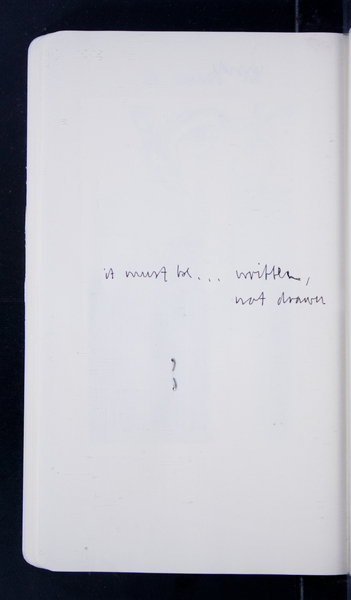 it must be... written,
not drawn